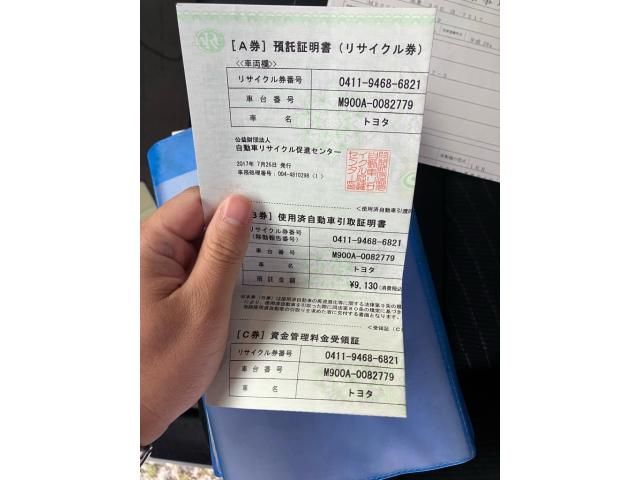 [A券] 預託証明書（リサイクル券）
<<車両欄>>
リサイクル券番号 0411-9468-6821
車台番号 M900A-0082779
車名 トヨタ
公益財団法人
自動車リサイクル促進センター
2017年 7月25日 発行
事務処理番号：004-4810298（1）
<使用済自動車引渡時
B券］使用済自動車引取証明書
リサイクル券番号
（移動報告番号） 0411-9468-6821
車台番号 M900A-0082779
車名 トヨタ
預託金額 ¥9,130（消費税込
<受領証（C
[C券] 資金管理料金受領証
リサイクル券番号 0411-9468-6821
車台番号 M900A-0082779
車名 トヨタ